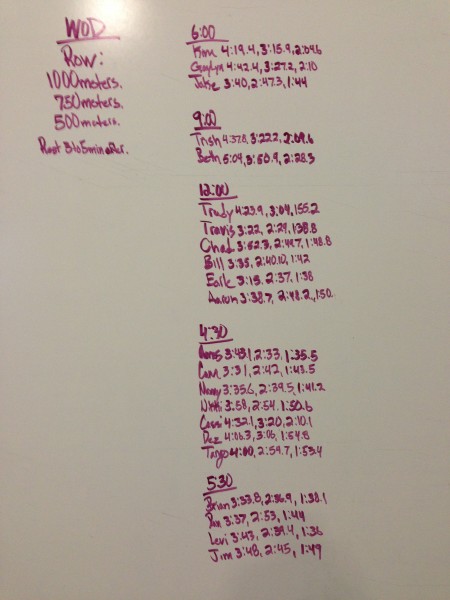 WOD
Row:
1000meters.
750meters.
500meters.
Rest 3to5min
6:00
Kim 4:19.4, 3:15.9, 2:04.6
4:42.4, 3:27.2, 2:10
Jake 3:40, 2:47.3, 1:44
9:00
Trish 4:37.8, 3:22.2, 2:09.6
Beth 5:04, 3:50.9, 2:28.3
12:00
Trudy 4:23.9, 3:04, 155.2
Travis 3:22, 2:29, 138.8
Chad 3:52.3, 2:49.7, 1:48.8
Bill 3:35, 2:40.10, 1:42
Earle 3:15, 2:37, 1:38
Aaron 3:38.7, 2:48.2, 150.
4:30
3:43.1, 2:33, 1:35.5
Cam 3:31, 2:42, 1:43.5
3:35.6, 2:39.5, 1:41.2
Nikki 3:58, 2:54, 1:50.6
Cassi 4:32.1, 3:20, 2:10.1
Dez 4:06.3, 3:06, 1:54.8
Tango 4:00, 2:59.7, 1:53.4
5:30
Brian 3:33.8, 2:36.9, 1:38.1
Dan 3:37, 2:53, 1:44
Levi 3:43, 2:39.4, 1:36
Jim 3:48, 2:45, 1:49